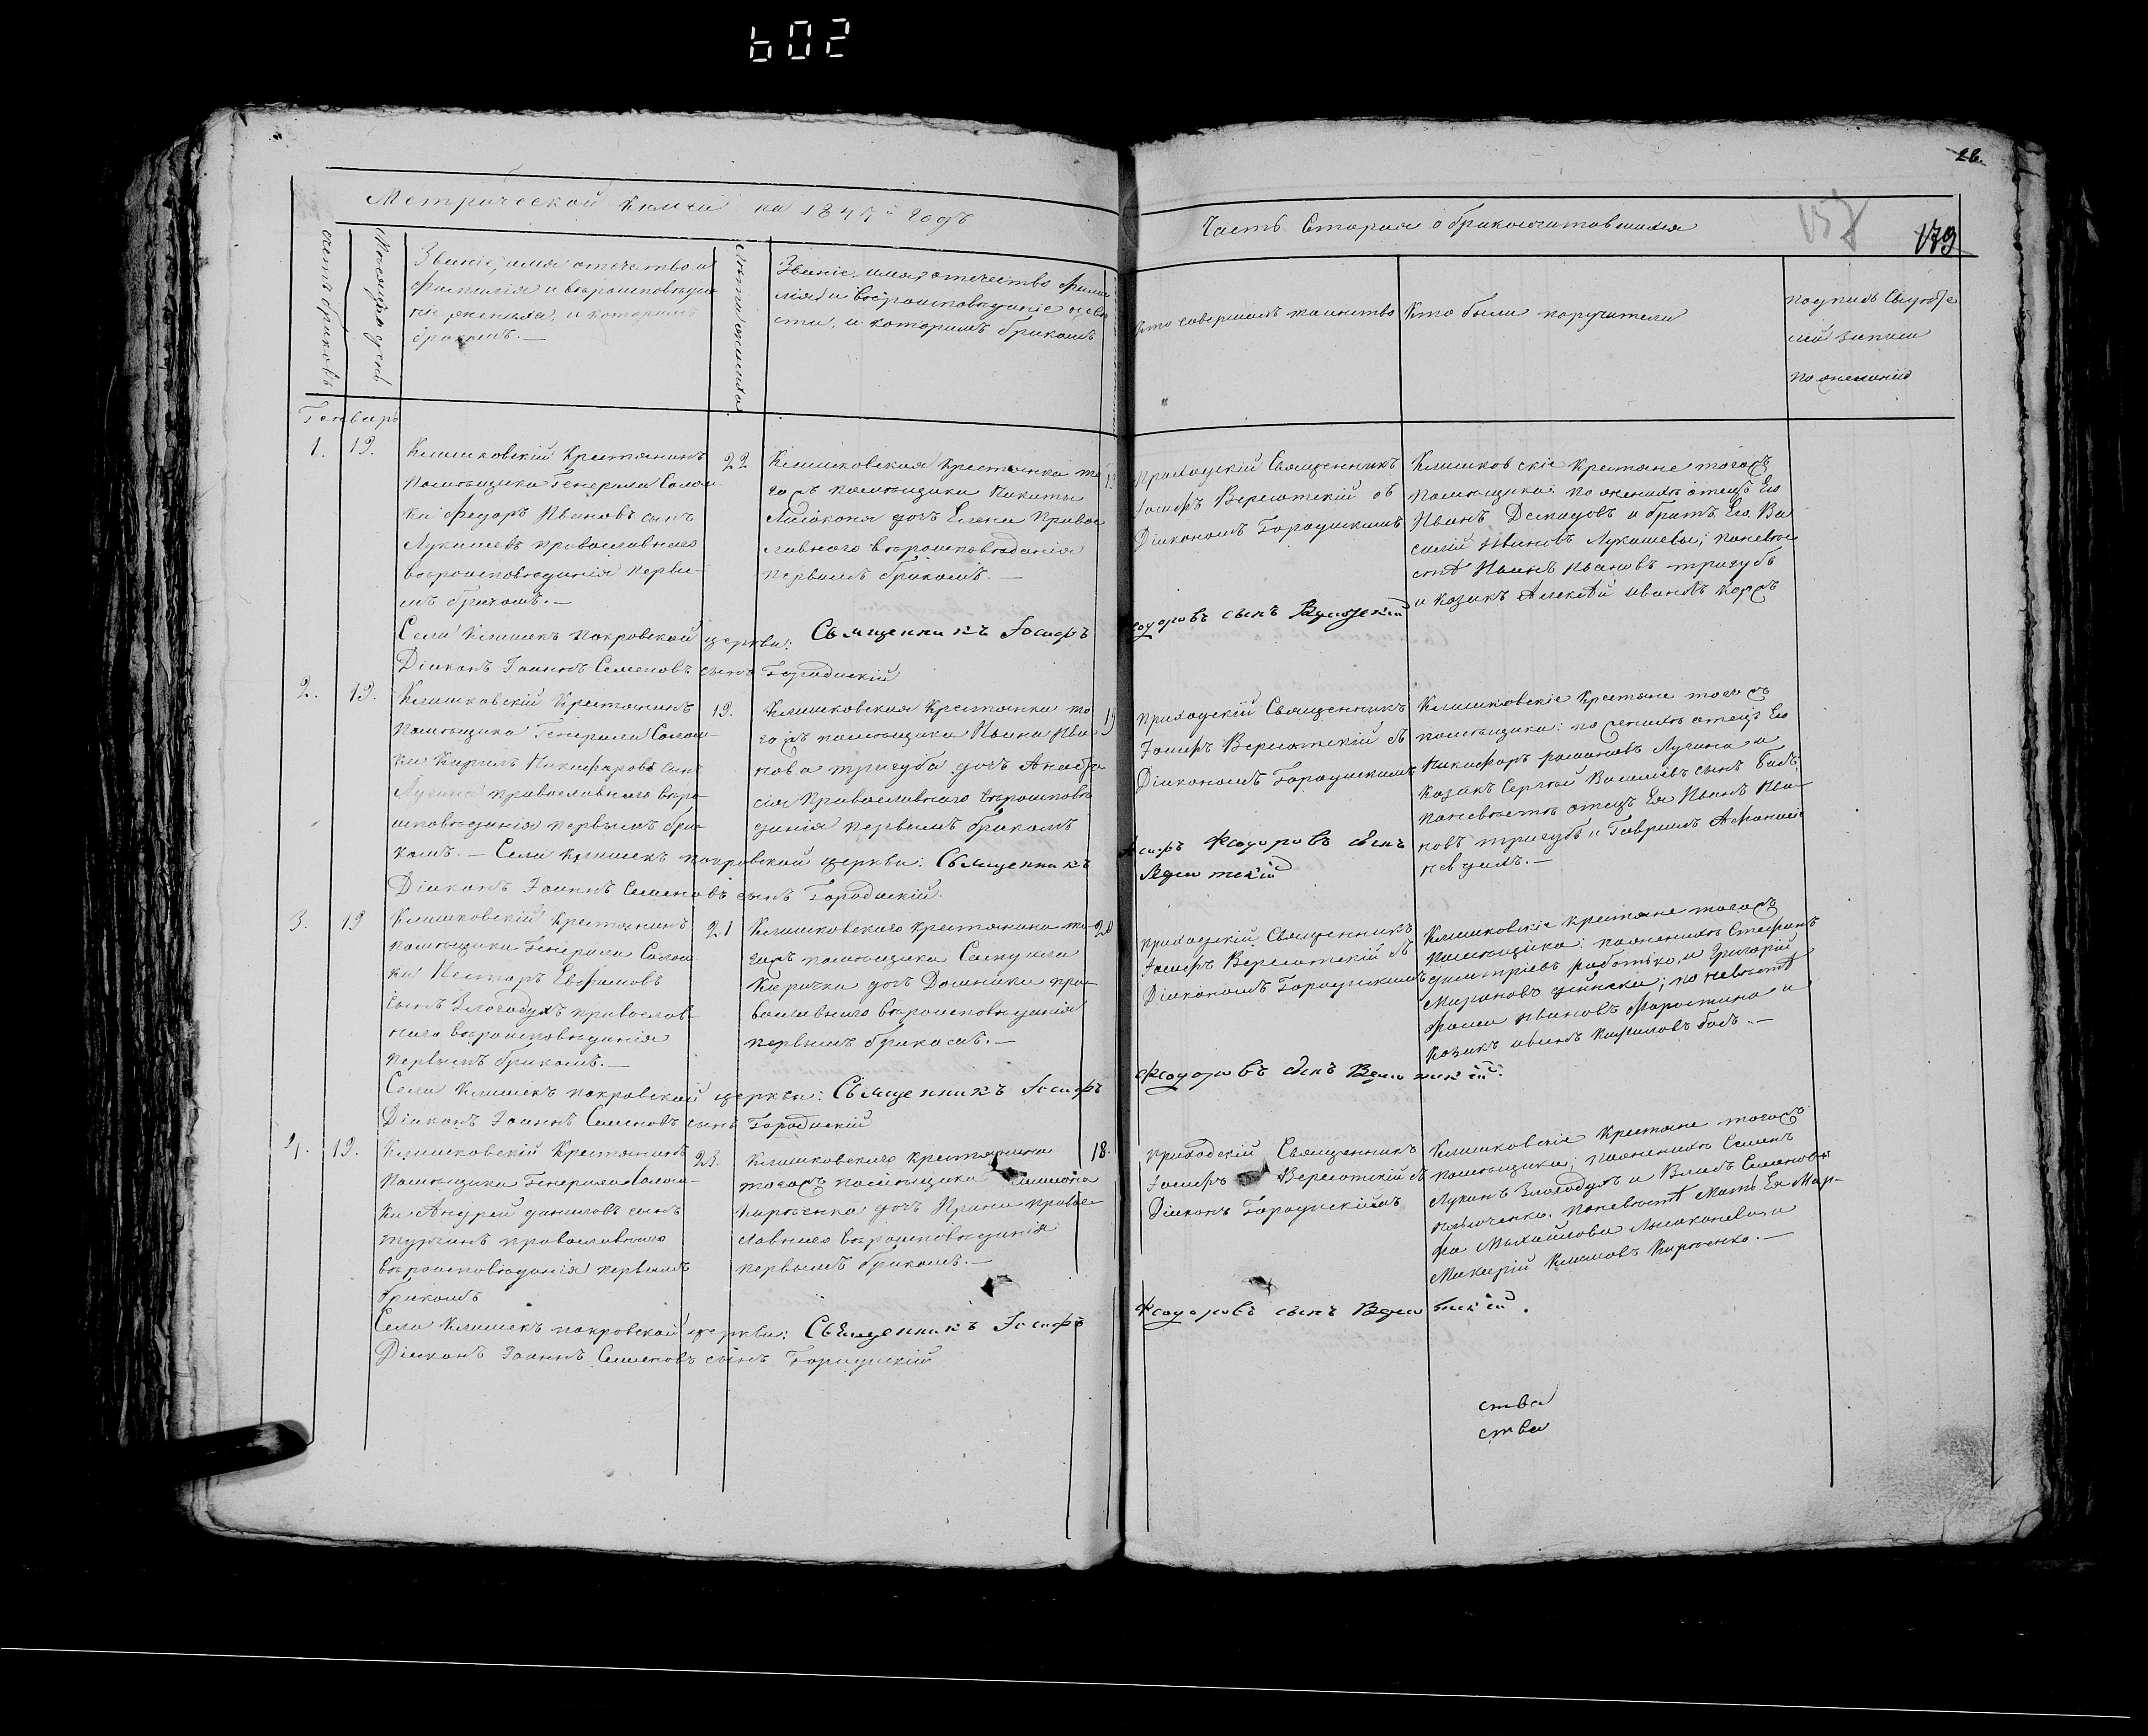 602
26.
Метрической книги на 1847й годъ
Часть Вторая о бракосочитавшихся
157
179
счетъ браковъ
Месяцъ и день
Званіе, имя, отечество и
фамилія и вероисповеда
ніе жениха, и которымъ
бракомъ. —
Лета жениха.
Званіе, имя, отечество фами
лія и вероисповеданіе неве
сты, и которымъ бракомъ
Кто совершалъ таинство
Кто были поручители
подписъ Свидете
лей записи
по желанію
Генварь
1.
19.
Клишковскій Крестянинъ
Помещика Генерала Солом
ки Федоръ Ивановъ сынъ
Лукашевъ православнаго
вероисповеданія первы-
мъ бракомъ. —
22
Клишковская Крестянка то
гожъ помещика Никиты
дочъ Елена Право
славного вероисповеданія
первымъ бракомъ. —
19
Приходскій Священникъ
Іосифъ Вереотскій съ
Діакономъ Городискимъ
Клишковскіе Крестяне тогожъ
помещика: по жениху отецъ Его
Иванъ Демидовъ и братъ Его Ва
силій Ивановъ Лукашевы; поневе
сте Иванъ Ивановъ тригубъ
и козакъ Алексей Ивановъ Коржъ
Села Клишекъ покровской церкви: Священникъ Іосифъ Феодоровъ сынъ
Діаконъ Іоаннъ Семеновъ сынъ Городискій
2.
19.
Клишковскій Крестянинъ
Помещика Генерала Солом
ки Кирилъ Никифоровъ сынъ
Лугина православного веро-
исповеданія первымъ бра-
комъ. —
19.
Клишковская Крестянка то
гожъ помещика Ивана Ива
нова тригуба дочъ Анаста
сія Православного вероисповe
данія первымъ бракомъ
19
Приходскій Священникъ
Іосифъ Вереотскій съ
Діакономъ Городискимъ
Клишковскіе Крестяне тогожъ
помещика: по жениху отецъ Его
Никифоръ романовъ Лугина и
Козакъ Сергей Василіевъ сынъ бабъ;
поневесте отецъ Ея Иванъ Ива-
новъ тригубъ и Гавриилъ Афанасіе
Села Клишекъ покровской церкви: Священникъ Іосифъ Феодоровъ сынъ
Діаконъ Іоаннъ Семеновъ сынъ Городискій.
3.
19
Клишковскій Крестянинъ
помещика Генерала Солом
ки Несторъ Евфимовъ
сынъ Злагодухъ православ
наго вероисповеданія
первымъ бракомъ. —
21
Клишковского крестянина то-
гожъ помещика
дочъ Домники пра-
вославного вероисповеданія
первымъ бракомъ. —
20
приходскій Священникъ
Іосифъ Вереотскій съ
Діакономъ Городискимъ
Клишковскіе крестяне тогожъ
помещика: пожениху Стефанъ
дмитріевъ и Григорій
Мироновъ по невесте
Фома Ивановъ и
Козакъ иванъ бабъ. —
Села Клишекъ покровской церкви: Священникъ Іосифъ Феодоровъ сынъ
Діаконъ Іоаннъ Семеновъ сынъ Городискій
4.
19.
Клишковскій Крестянинъ
Помещика Генерала Солом-
ки Андрей даниловъ сынъ
православного
вероисповеданія первымъ
бракомъ
23.
Клишковского крестянина
тогожъ помещика
Кириенка дочъ Ирина право-
славного вероисповеданія
первымъ бракомъ. —
18.
приходскій Священникъ
Іосифъ Вереотскій съ
Діаконъ Городискимъ
Клишковскіе Крестяне тогожъ
помещика; пожениху Семенъ
Лукинъ Злагодухъ и Власъ Семеновъ
поневесте мать Ея Мар-
фа Михайлова и
Макарій Климовъ Кириенко. —
Села Клишекъ покровской церкви: Священникъ Іосифъ Феодоровъ сынъ
Діаконъ Іоаннъ Семеновъ сынъ Городискій
ства
ства